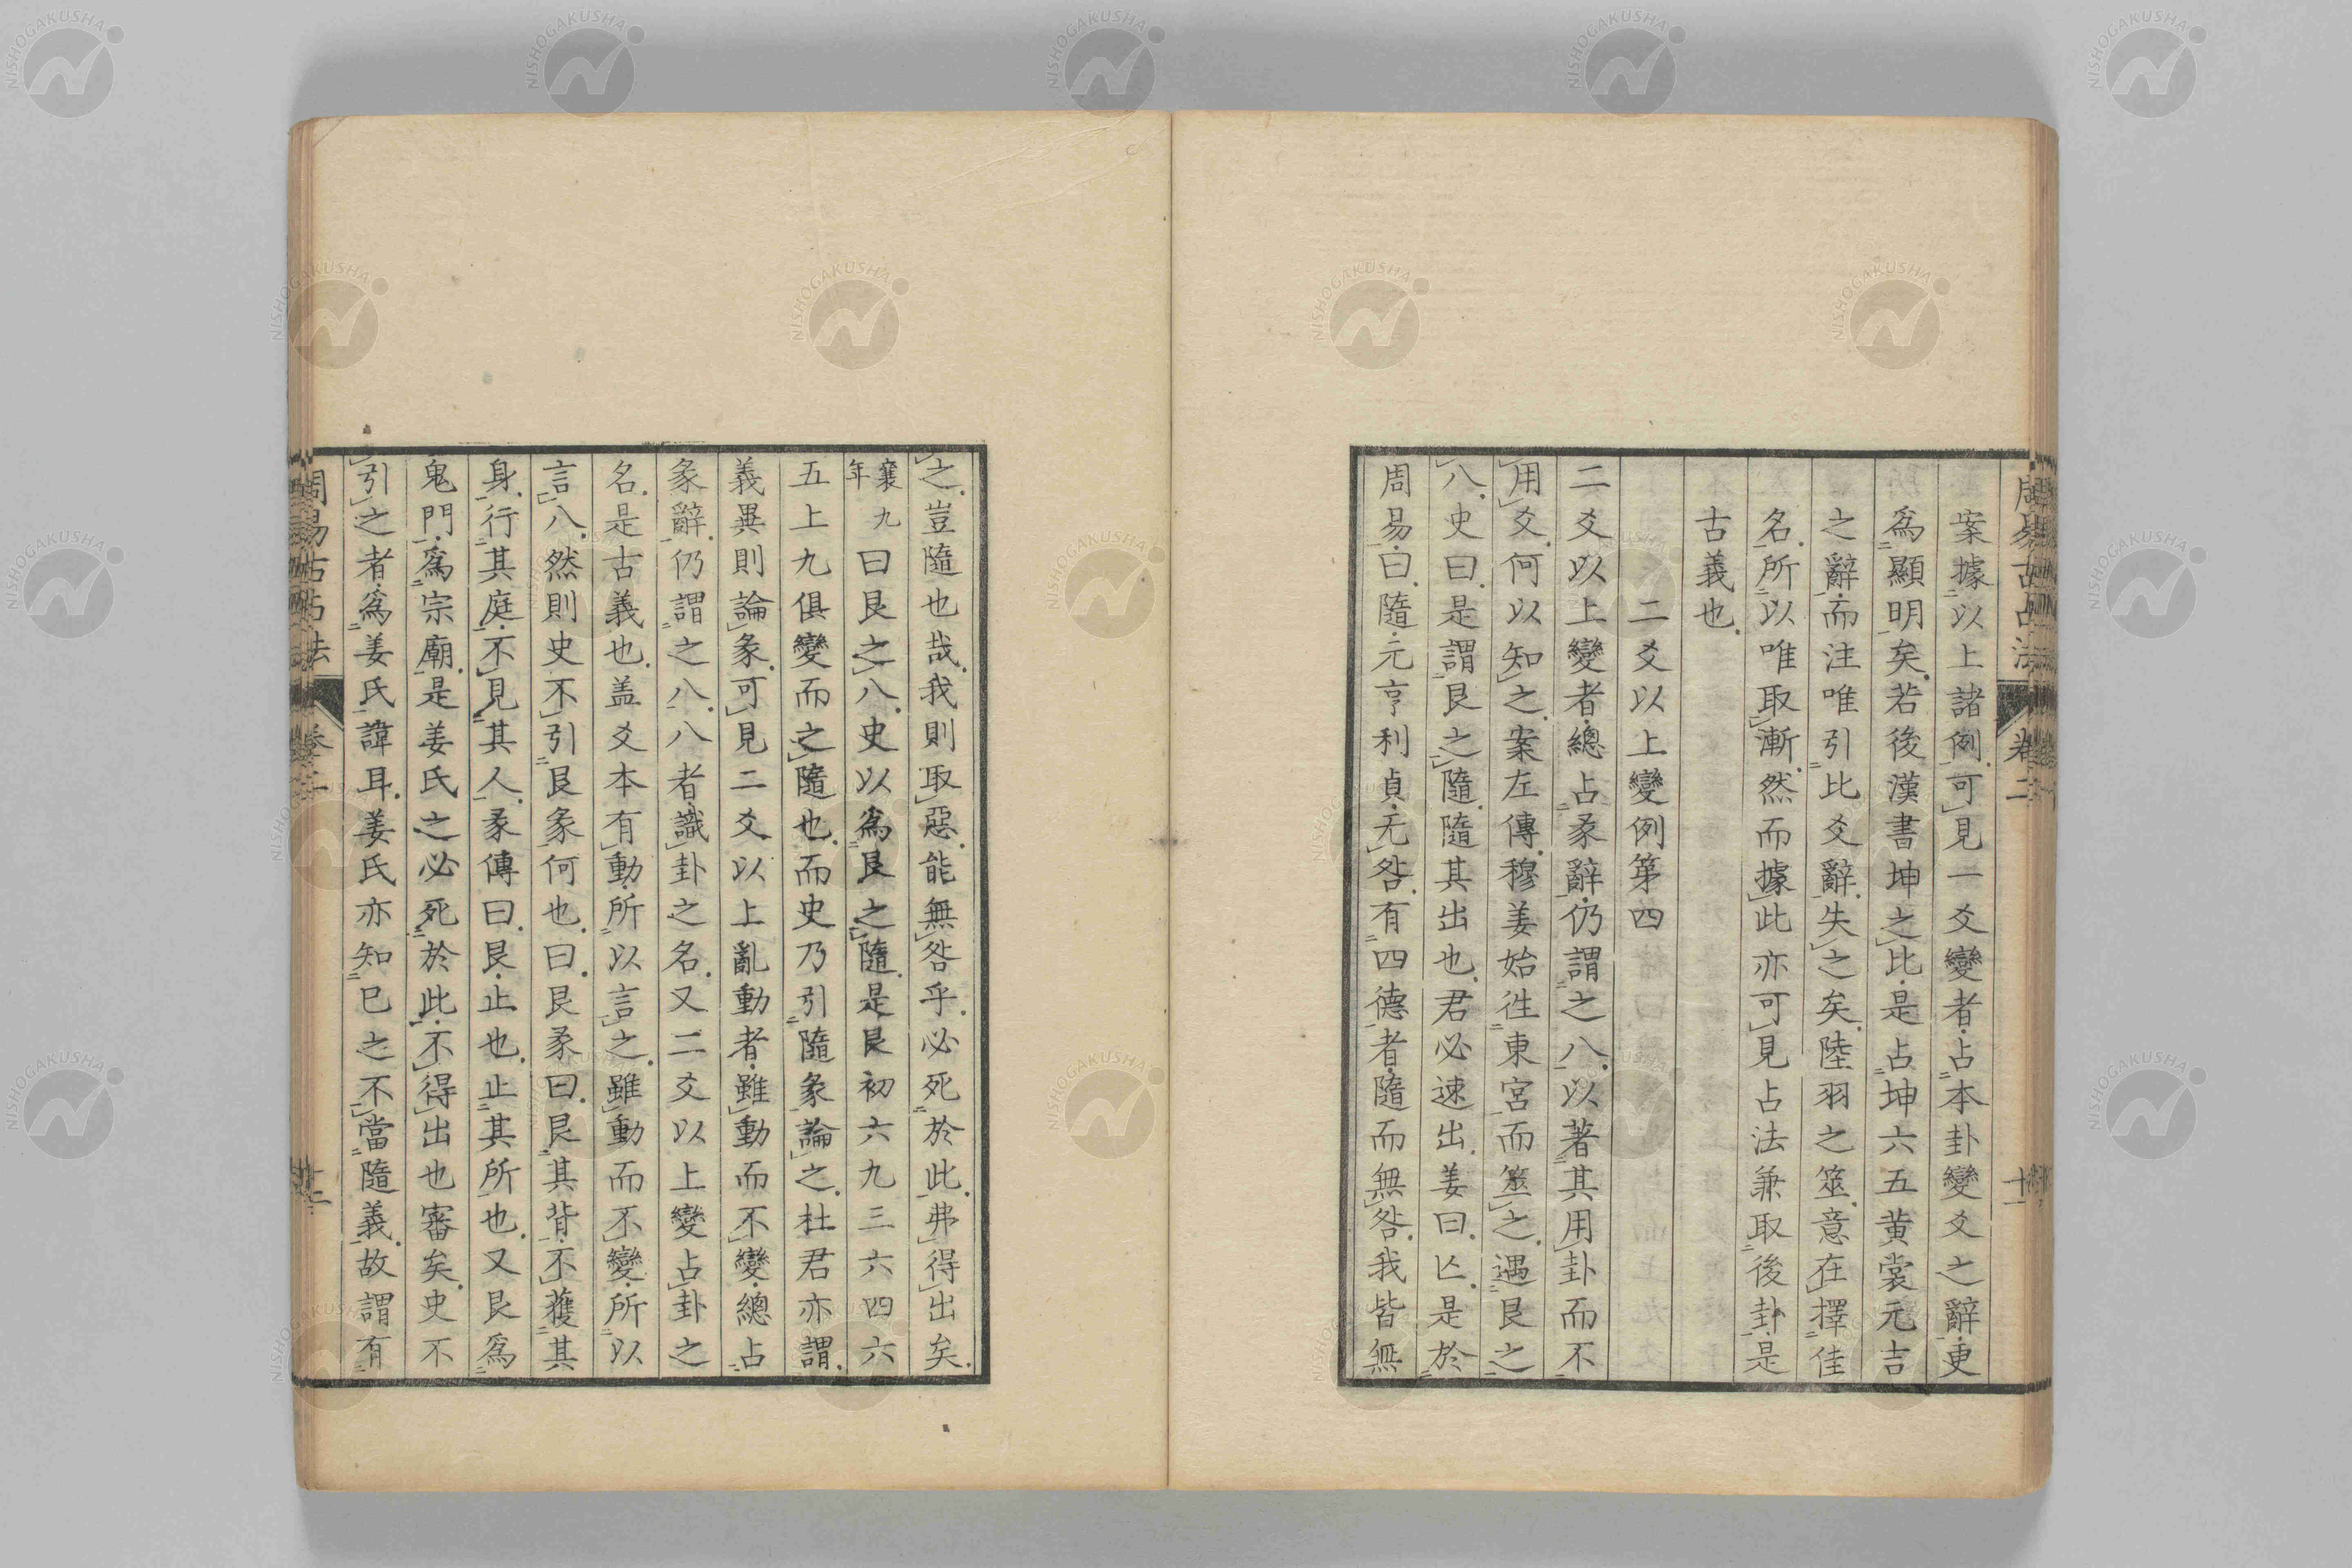 周易古占法 卷二 十一
案據以上諸例可見一爻變者占本卦變爻之辭更
爲顯明矣若後漢書坤之比是占坤六五黃裳元吉
之辭而注唯引比爻辭失之矣陸羽之筮意在擇佳
名所以唯取漸然而據此亦可見占法兼取後卦是
古義也
二爻以上變例第四
二爻以上變者總占彖辭仍謂之八以著其用卦而不
用爻何以知之案左傳穆姜始徃東宮而筮之遇艮之
八史曰是謂艮之隨隨其出也君必速出姜曰亾是於
周易曰隨元亨利貞无咎有四德者隨而無咎我皆無
之豈隨也哉我則取惡能無咎乎必死於此弗得出矣
襄九年 曰艮之八史以爲艮之隨是艮初六九三六四六
五上九俱變而之隨也而史乃引隨彖論之杜君亦謂
義異則論彖可見二爻以上亂動者雖動而不變總占
彖辭仍謂之八八者識卦之名又二爻以上變占卦之
名是古義也盖爻本有動所以言之雖動而不變所以
言八然則史不引艮彖何也曰艮彖曰艮其背不獲其
身行其庭不見其人彖傳曰艮止也止其所也又艮爲
鬼門爲宗廟是姜氏之必死於此不得出也審矣史不
引之者爲姜氏諱耳姜氏亦知已之不當隨義故謂有
周易古占法 卷二 十二
NISHOGAKUSHA